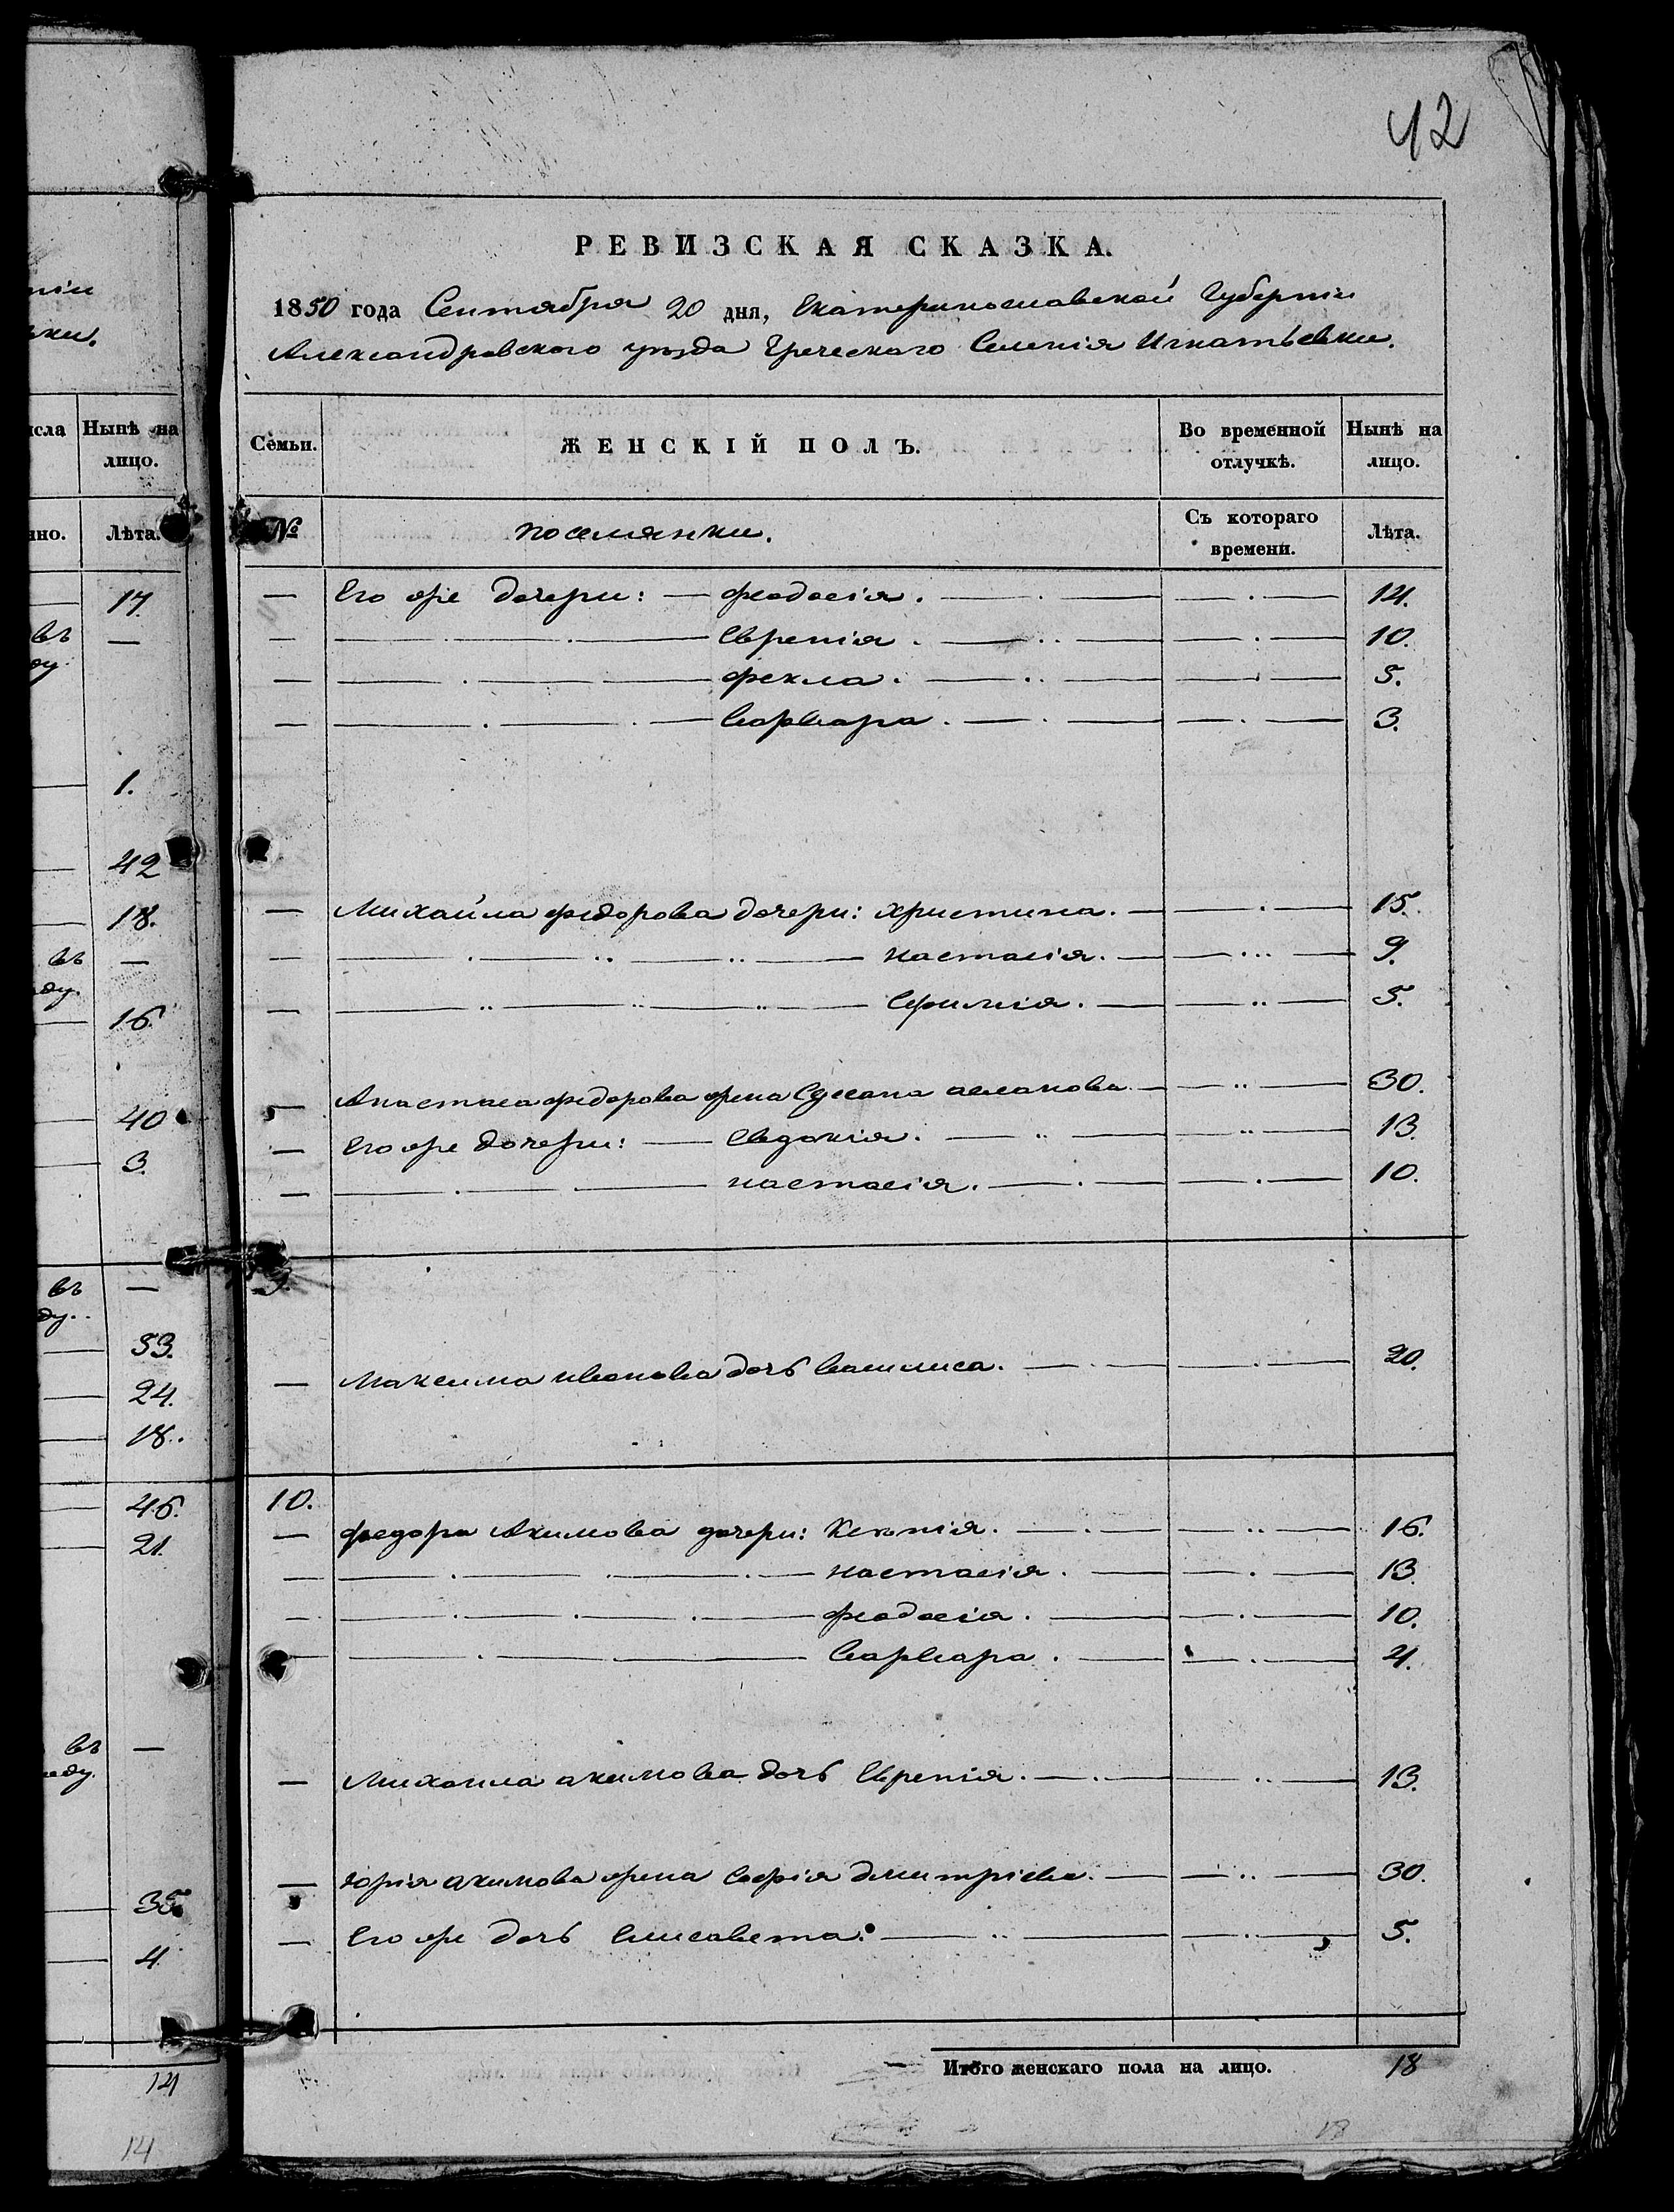 42
РЕВИЗСКАЯ СКАЗКА.
1850 года Сентября 20 дня, Екатеринославской Губерніи
Александровского уѣзда Греческаго Селенія Игнатьевки.
Семьи. ЖЕНСКІЙ ПОЛЪ. Во временной отлучкѣ. Нынѣ на лицо.
№ поселянки. Съ котораго времени. Лѣта.
— Его же дочери: — феодосія. — 14.
— Евгенія. — 10.
— фекла. — 5.
— Варвара. — 3.
— Михайла федорова дочери: христина. — 15.
— настасія. — 9.
— Ефимія. — 5.
— Анастаса федорова жена Сусана асланова — 30.
— Его же дочери: — Евдокія. — 13.
— настасія. — 10.
9.
— Максима иванова дочь василиса. — 20.
10.
— федора Акимова дочери: Ксенія. — 16.
— настасія. — 13.
— феодосія. — 10.
— Варвара. — 4.
— Михаила акимова дочь Евгенія. — 13.
— Юрія акимова жена Софія дмитріева. — 30.
— Его же дочь Елисавета. — 5.
Итого женскаго пола на лицо. 18
18
ніи
вки.
исла Нынѣ на лицо.
нно. Лѣта.
17.
въ —
ду.
1.
42
18.
въ —
ду.
16.
40
3.
въ —
ду.
53.
24.
18.
46.
21.
въ —
ду.
35.
4
14
14